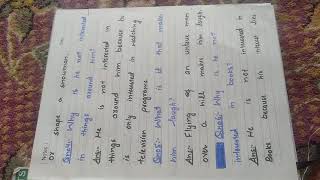 or shape a snowman
Ques:- Why is he not interested
in things around him?
Ans:- He is not interested in
things around him because he
is only interested in watching
television programs
Ques:- What is it that makes
him laugh?
Ans:- Flying of an unlace man
over a hill makes him laugh
Ques:- Why is he not
interested in books?
Ans:- He is not interested in
Books because his interest lies